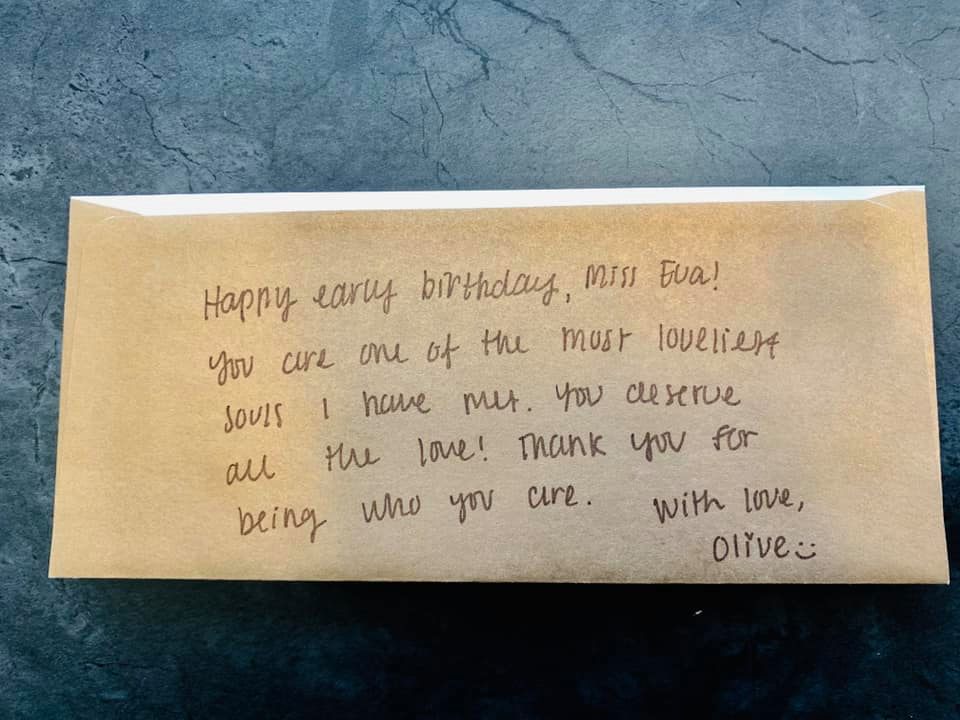 Happy early birthday, Miss Eva!
You are one of the most loveliest
souls I have met. You deserve
all the love! Thank you for
being who you are. With love,
Olive :)